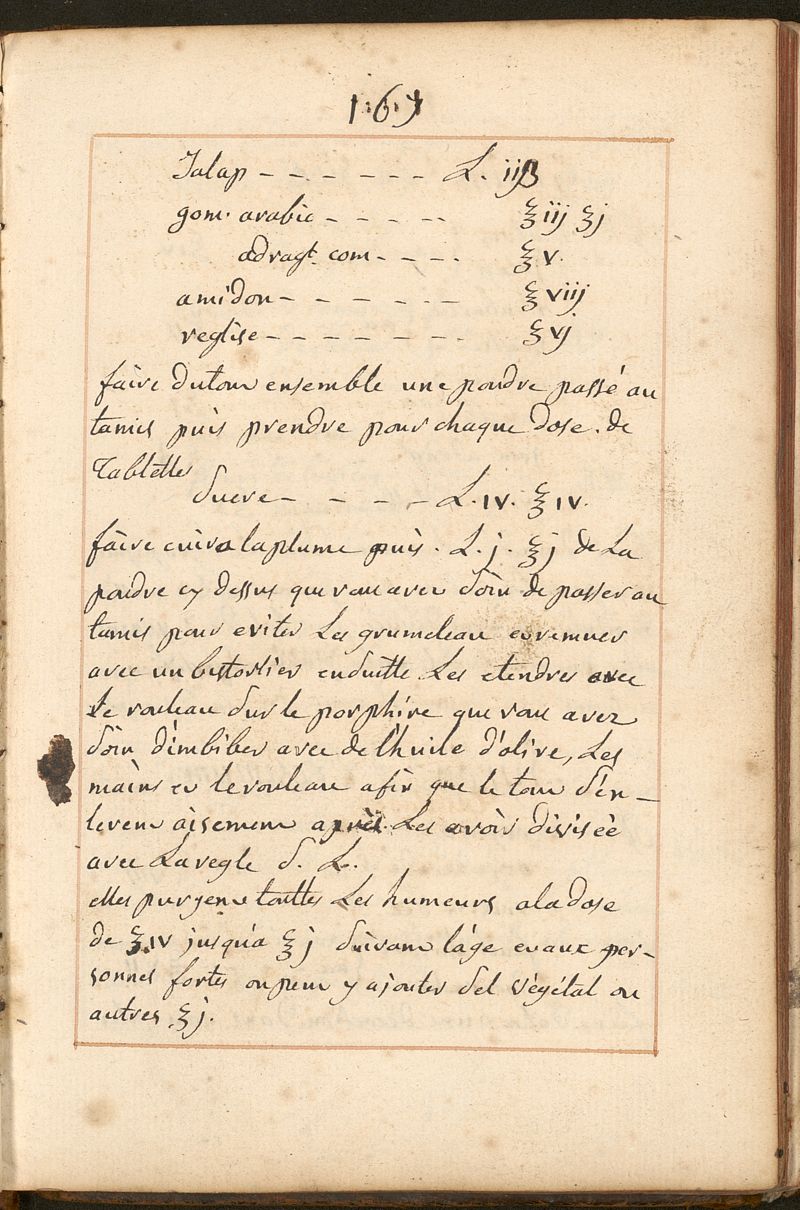 167
Jalap - - - - - - L. iijß
gom. arabic - - - - - ℥iij ℥j
adragt. com - - - - ℥v.
amidon - - - - - - ℥viij
reglise - - - - - - - ℥vj
faire dutout ensemble une poudre passé au
tamis puis prendre pour chaque dose de
Tablettes
Sucre - - - - - L.iv. ℥iv.
faire cuire alaplume puis. L. j. ℥j de La
poudre cy dessus que vous avez Soin de passer au
tamis pour eviter Les grumeleau et remuer
avec un bistortier ensuitte Les etendres avec
Le rouleau Sur le porphire que vous avez
Soin d'imbiber avec de l'huile d'olive, Les
mains et lerouleau afin que le tout S'en -
levent aisement après Les avoir divisée
avec Laregle S. L.
elles purgent touttes Les humeurs ala dose
de ʒiv jusqu'a ℥j Suivant l'âge et aux per-
sonnes fortes on peut y ajouter Sel végétal ou
autres ʒj.